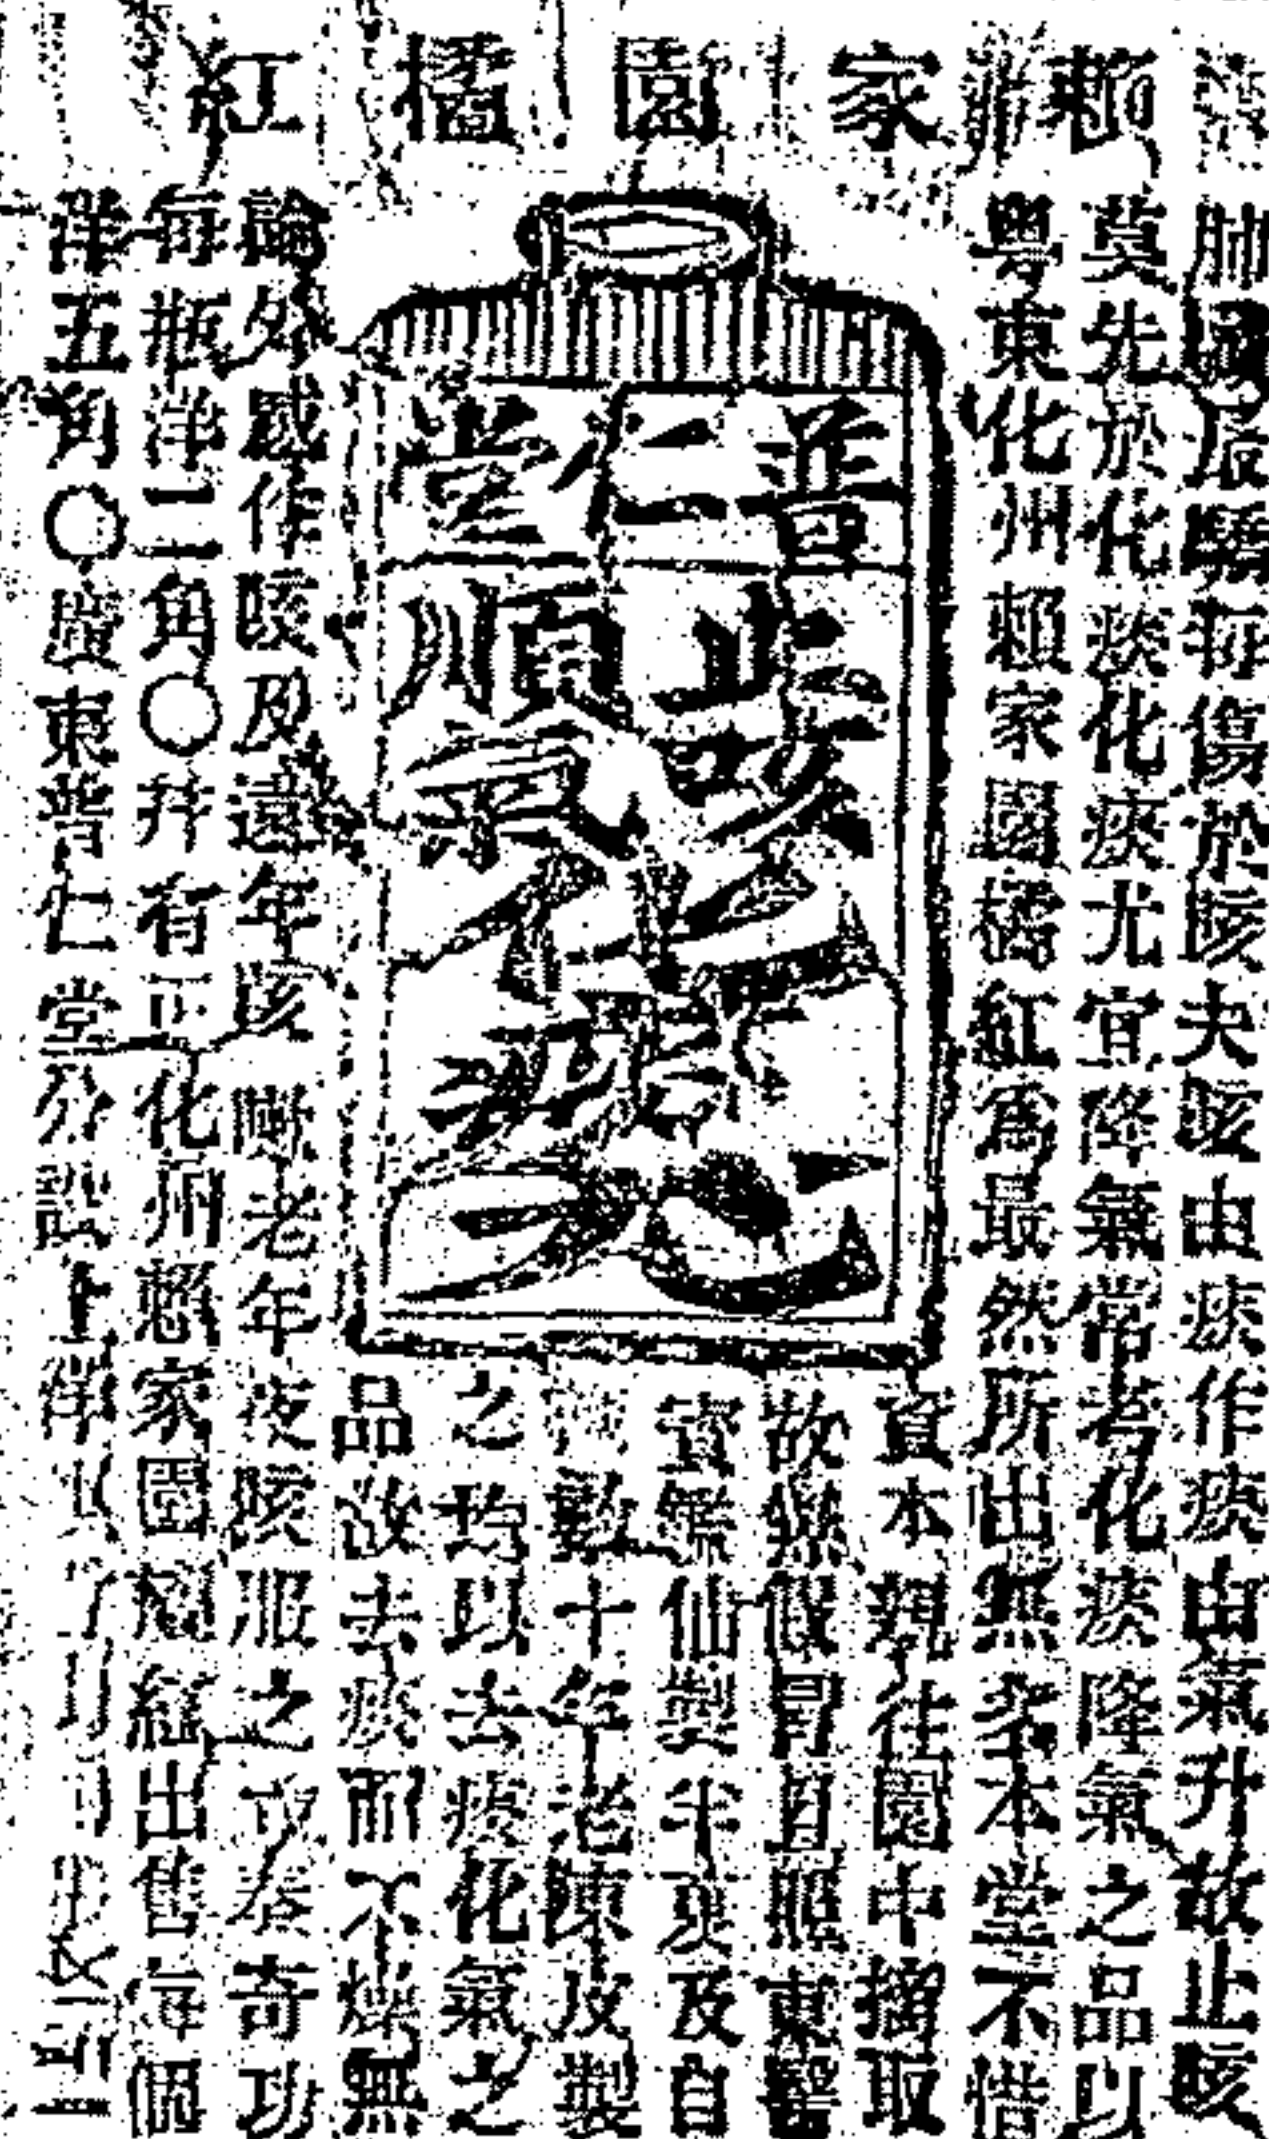 賴家園橘紅
肺最嬌每傷於咳夫咳由痰作痰由氣升故止咳
莫先於化痰化痰尤宜降氣常考化痰降氣之品以
粤東化州賴家園橘紅爲最然所出無多本堂不惜
資本親往園中摘取
故無假冒且照東醫
仙製半夏及自
數十年老陳皮製
之均以去痰化氣之
品故去痰而不燥無
普仁堂
止咳順氣化痰
論外感作咳及遠年咳嗽老年夜咳服之亦奏奇功
每瓶洋二角〇幷有正化州賴家園橘紅出售每個
洋五角〇廣東普仁堂分設上洋